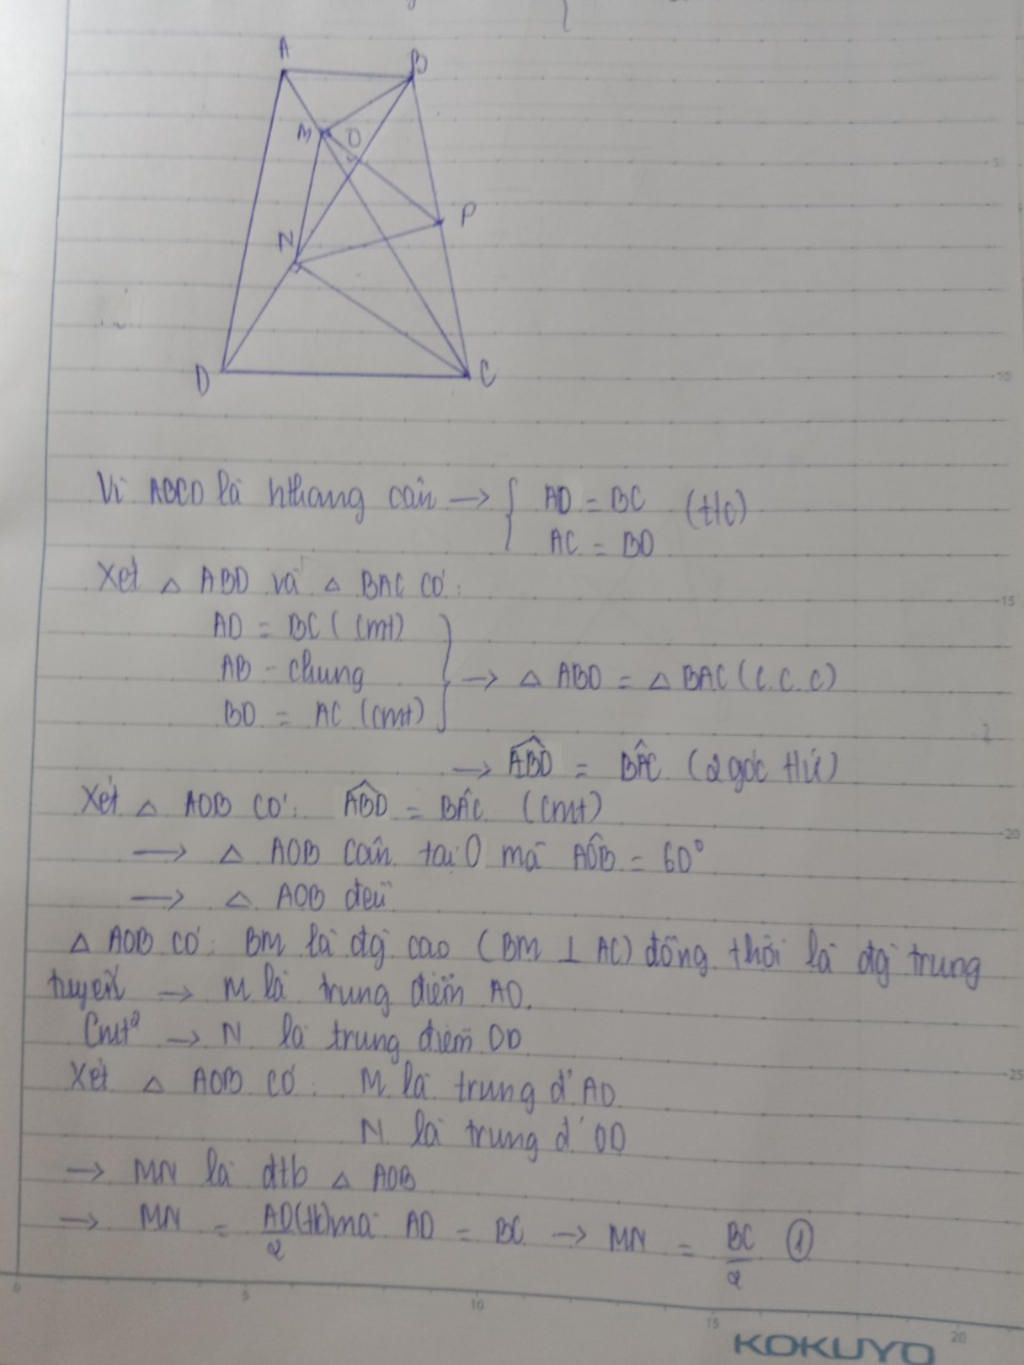 A
B
M
O
P
N
D
C
Vì ABCD là hthang cân → { AD = BC (t/c)
AC = BD
Xét △ ABD và △ BAC có:
AD = BC (cmt)
AB - chung
BD = AC (cmt)
} → △ ABD = △ BAC (c.c.c)
→ ABD̂ = BÂC (2 góc t/ứ)
Xét △ AOB có: ABD̂ = BÂC (cmt)
→ △ AOB cân tại O mà AÔB = 60°
→ △ AOB đều
△ AOB có: BM là đg cao (BM ⊥ AC) đồng thời là đg trung
tuyến → M là trung điểm AO.
Cmt² → N là trung điểm OD
Xét △ AOD có: M là trung đ' AO
N là trung đ' OD
→ MN là đtb △ AOB
→ MN = AD/2 (tc) mà AD = BC → MN = BC/2 ①
5
10
15
20
25
0
5
10
15
20
KOKUYO